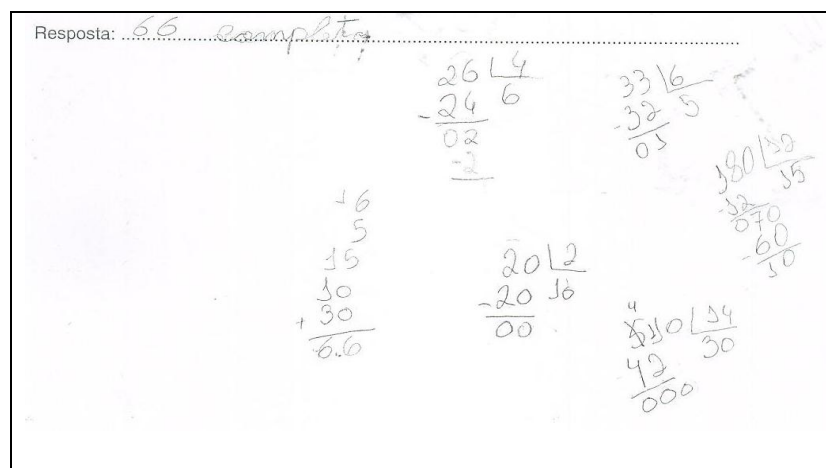 Resposta: 66 completos
26 4
- 24 6
02
- 2
33 6
- 32 5
01
180 12
- 12 15
070
- 60
10
16
5
15
10
+ 30
66
20 2
- 20 10
00
4
5110 14
42 30
000